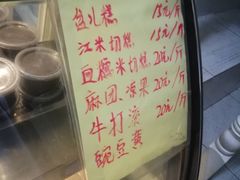 盆儿糕 15元/斤
江米切糕 15元/斤
血糯米切糕 20元/斤
麻团、凉果 20元/斤
牛打滚 20元/斤
豌豆黄